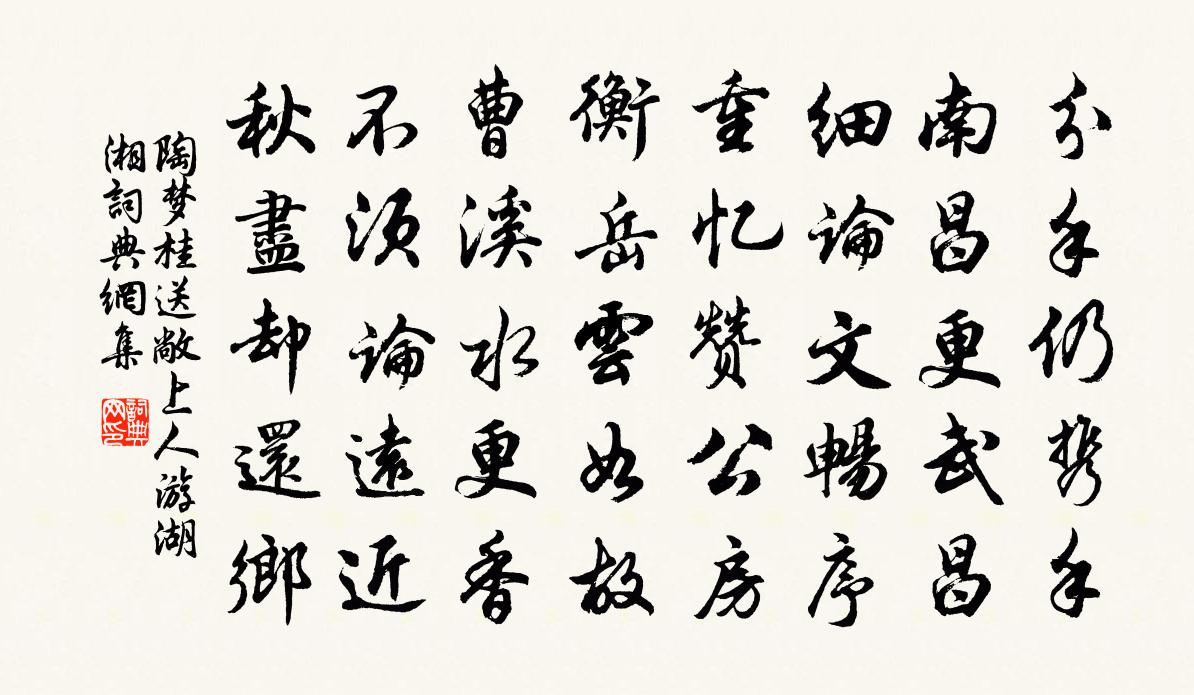 分手仍携手
南昌更武昌
细論文暢序
重忆赞公房
衡岳雲如故
曹溪水更香
不须論遠近
秋盡却還鄉
陶梦桂送敞上人游湖
湘詞典網集
詞典
网印